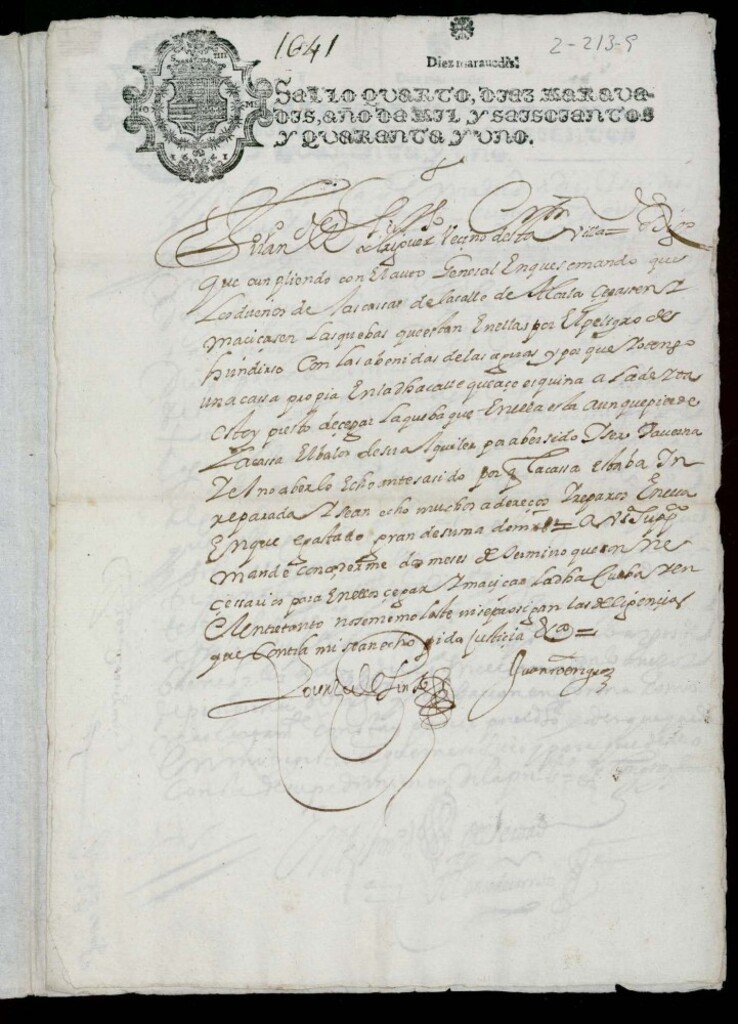 1641
2-213-9
Diez marauedis
SELLO QVARTO, DIEZ MARAVE-
DIS, AÑO DE MIL Y SEISCIENTOS
Y QVARENTA Y VNO.
1641
Juan Vecino desta Villa = Digo
Que cunpliendo con El auto General Enque se mando que
Los dueños de las cassas de la calle de Alcala cegasen y
maciçasen las quebas que estan En ellas por El peligro de
hundirse Con las abenidas de las aguas y por que yo tengo
una cassa propia En la dha calle que açe esquina a la de
estoy presto de çegar la queba que En ella esta aunque pierde
La cassa El balor de su alquiler pa aber sido y ser taverna
y El no aberlo Echo antes a sido por q la cassa estaba
reparada y sean echo muchos adereços y reparos En ella
En que e gastado gran de suma de = A Vs Supco
mande conçederme dos meses de termino que son ne
çessarios para En ellos çegar y maciçar la dha Cueba y en
El entretanto no se me moleste ni se prosigan las diligençias
que Contra mi sean echo pido justicia Ea =
Juan Rodriguez